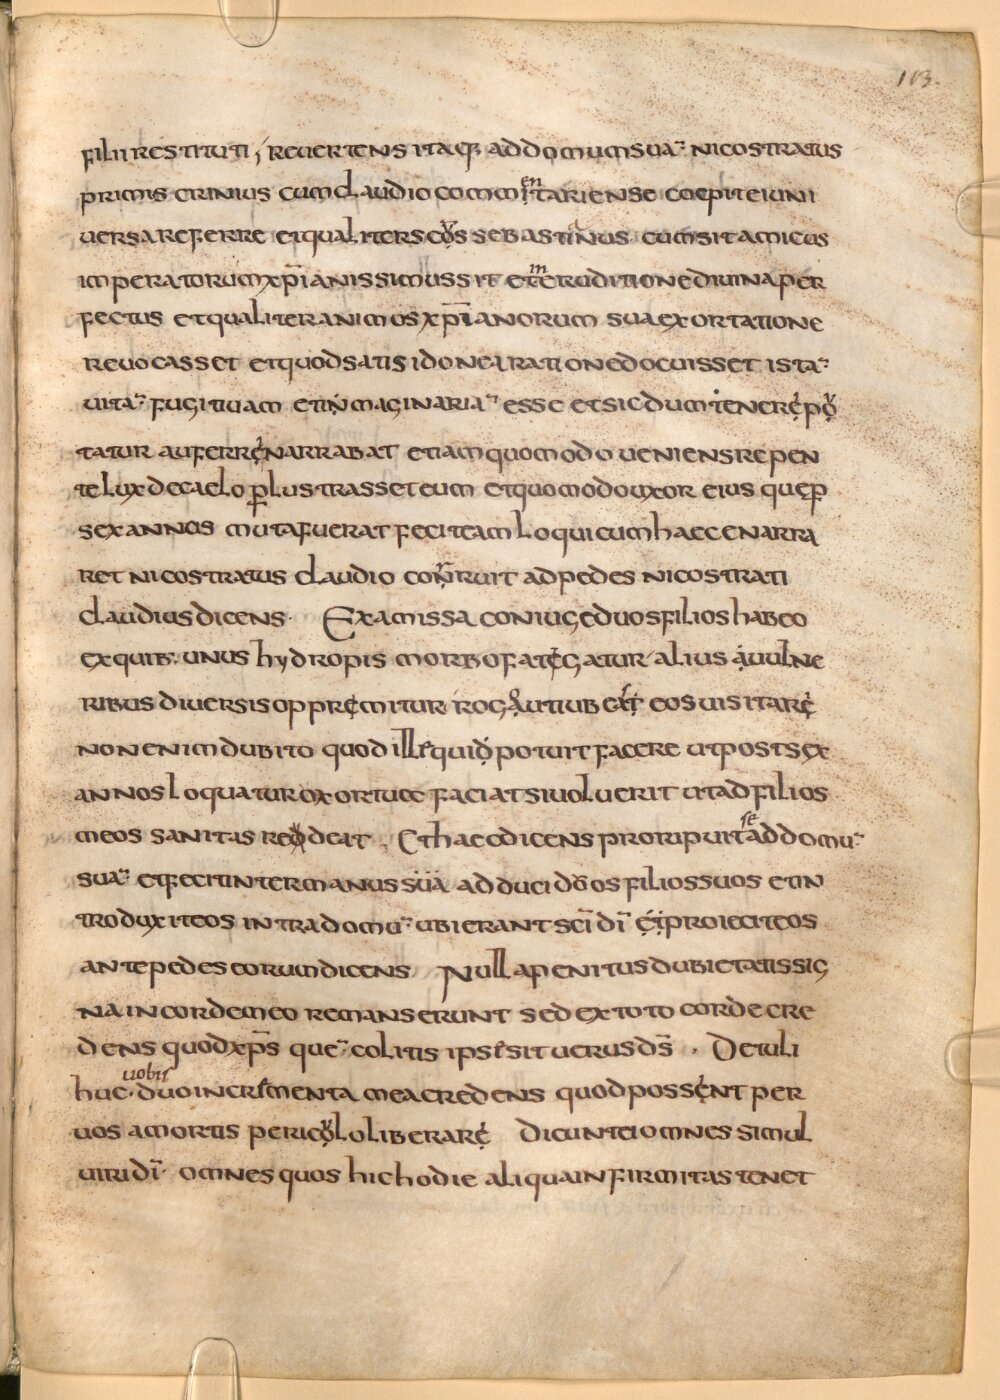 103.
filii restituti, reuertens itaq; ad domum sua᷃ nicostratus
primis crinius cum claudio commentariense coepit ei uni
uersa referre et qualiter sc̄s sebastianus cum sit amicus
imperatorum xp̄ianissimus sit et in eruditione diuina per
fectus et qualiter animos xp̄ianorum sua exortatione
reuocasset et quod satis idonea ratione docuisset ista᷃
uita᷃ fugitiuam et imaginaria᷃ esse et sic dum teneri pu
tatur auferri narrabat etiam quomodo ueniens repen
te lux de caelo p̱lustrasset eum et quomodo uxor eius que p̱
sex annos muta fuerat fecit eam loqui cum haec enarra
ret nicostratus claudio conruit ad pedes nicostrati
claudius dicens Ex amissa coniuge duos filios habeo
ex quib; unus hydropis morbo fatigatur alius a uulne
ribus diuersis opprimitur rogo ut iubeas eos uisitari
non enim dubito quod ille qui potuit facere ut post sex
annos loquatur uxor tua faciat si uoluerit ut ad filios
meos sanitas redeat Et haec dicens proripuit se ad domu᷃
sua᷃ et fecit inter manus sua adduci duos filios suos et in
troduxit eos intra domu᷃ ubi erant sc̄i dī et proiecit eos
ante pedes eorum dicens Nulla penitus dubietatis sig
na in corde meo remanserunt sed ex toto corde cre
dens quod xp̄s que᷃ colitis ipse sit uerus ds̄ . Detuli
huc uobis duo incrementa mea credens quod possint per
uos a mortis periculo liberari Dicunt ei omnes simul
uiri dī omnes quos hic hodie aliqua infirmitas tenet